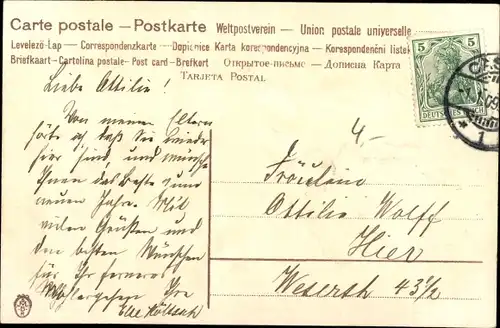 Carte postale – Postkarte Weltpostverein – Union postale universelle
Levelező-Lap – Correspondenzkarte – Dopisnice Karta korespondencyjna – Korespondenční lístek
Briefkaart – Cartolina postale – Post card – Brefkort Открытое письмо – Дописна Карта
TARJETA POSTAL
5 5
DEUTSCHES REICH
* 1
Liebe Ottilie!
Von meinen Eltern
hörte ich daß Sie wieder
hier sind, und wünsche
Ihnen das Beste zum
neuen Jahre. Mit
vielen Grüßen und
den besten Wünschen
für Ihr ferneres
Wohlergehen Ihre
Else
4-
Fräulein
Ottilie Wolff
Hier
Weserstr 43½